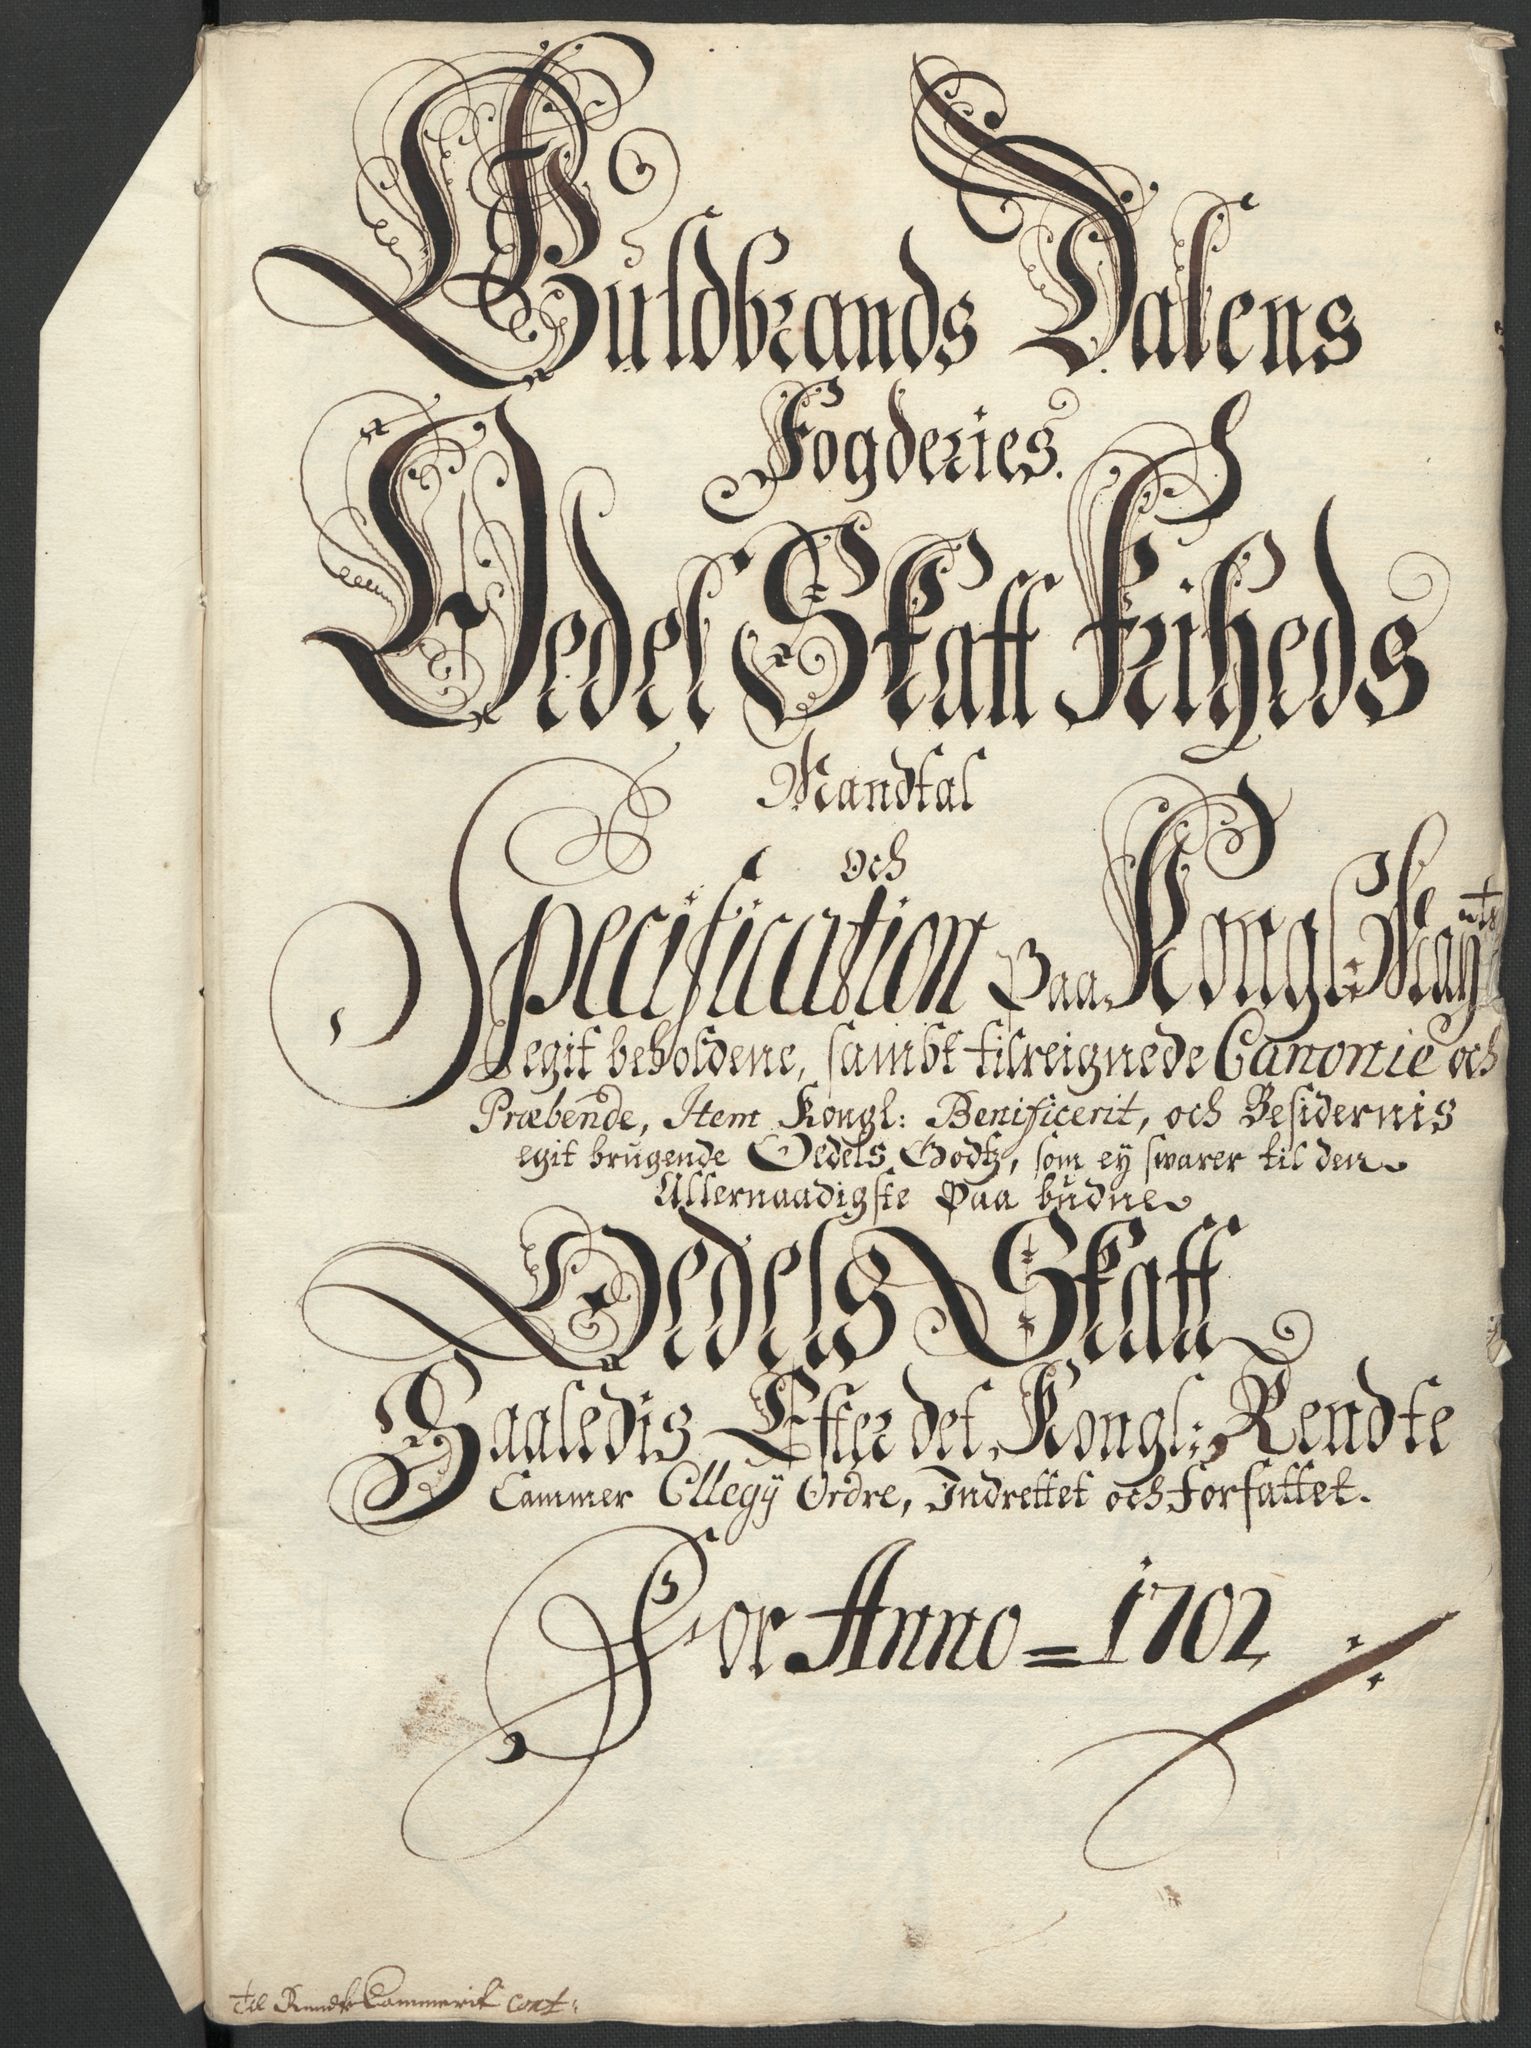 Guldbrands Dalens
Fogderies.
Oedel Skatt Friheds
Mandtal
och
Specification Paa Kongl: Mayts
egit beholdene, sambt tilreignede Canonie och
Præbende, Item Kongl: Benificerit, och Besidernis
egit brugende Oedels Godtz, som ey swarer til den
Allernaadigste Paa budne
Oedels Skatt
Saaledis Efter det Kongl: Rendte
Cammer Cllegy Ordre, Indrettet och Forfattet.
For Anno = 1702
Til Rendte Cammerit Cont: